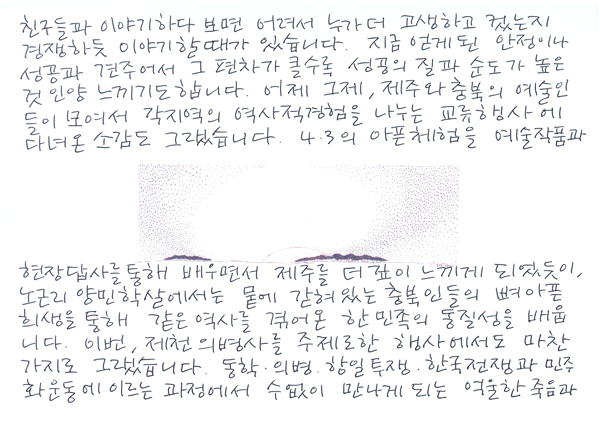 친구들과 이야기하다 보면 어려서 누가 더 고생하고 컸는지
경쟁하듯 이야기할 때가 있습니다. 지금 얻게 된 안정이나
성공과 견주어서 그 편차가 클수록 성공의 질과 순도가 높은
것인양 느끼기도 합니다. 어제 그제, 제주와 충북의 예술인
들이 모여서 각지역의 역사적경험을 나누는 교류행사에
다녀온 소감도 그랬습니다. 4·3의 아픈체험을 예술작품과
현장답사를 통해 배우면서 제주를 더 깊이 느끼게 되었듯이,
노근리 양민학살에서는 뭍에 갇혀있는 충북인들의 뼈아픈
희생을 통해 같은 역사를 겪어온 한민족의 동질성을 배웁
니다. 이번, 제천 의병사를 주제로한 행사에서도 마찬
가지로 그랬습니다. 동학·의병·항일투쟁·한국전쟁과 민주
화운동에 이르는 과정에서 수없이 만나게 되는 억울한 죽음과